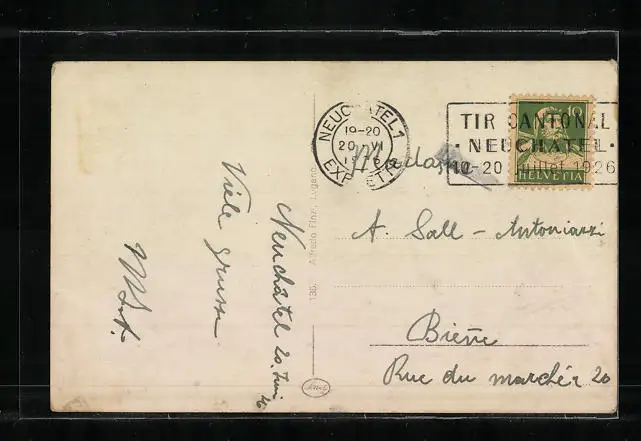 NEUCHATEL 1
19-20
20 VI
EXP. LETTR.
TIR CANTONAL
· NEUCHATEL ·
10-20 Juillet 1926
10
HELVETIA
Madame
A. Sall - Antoniazzi
Bienne
Rue du marché 20
Neuchâtel 20. Juni 26
Viele Grüsse
136. Alfredo Finzi, Lugano